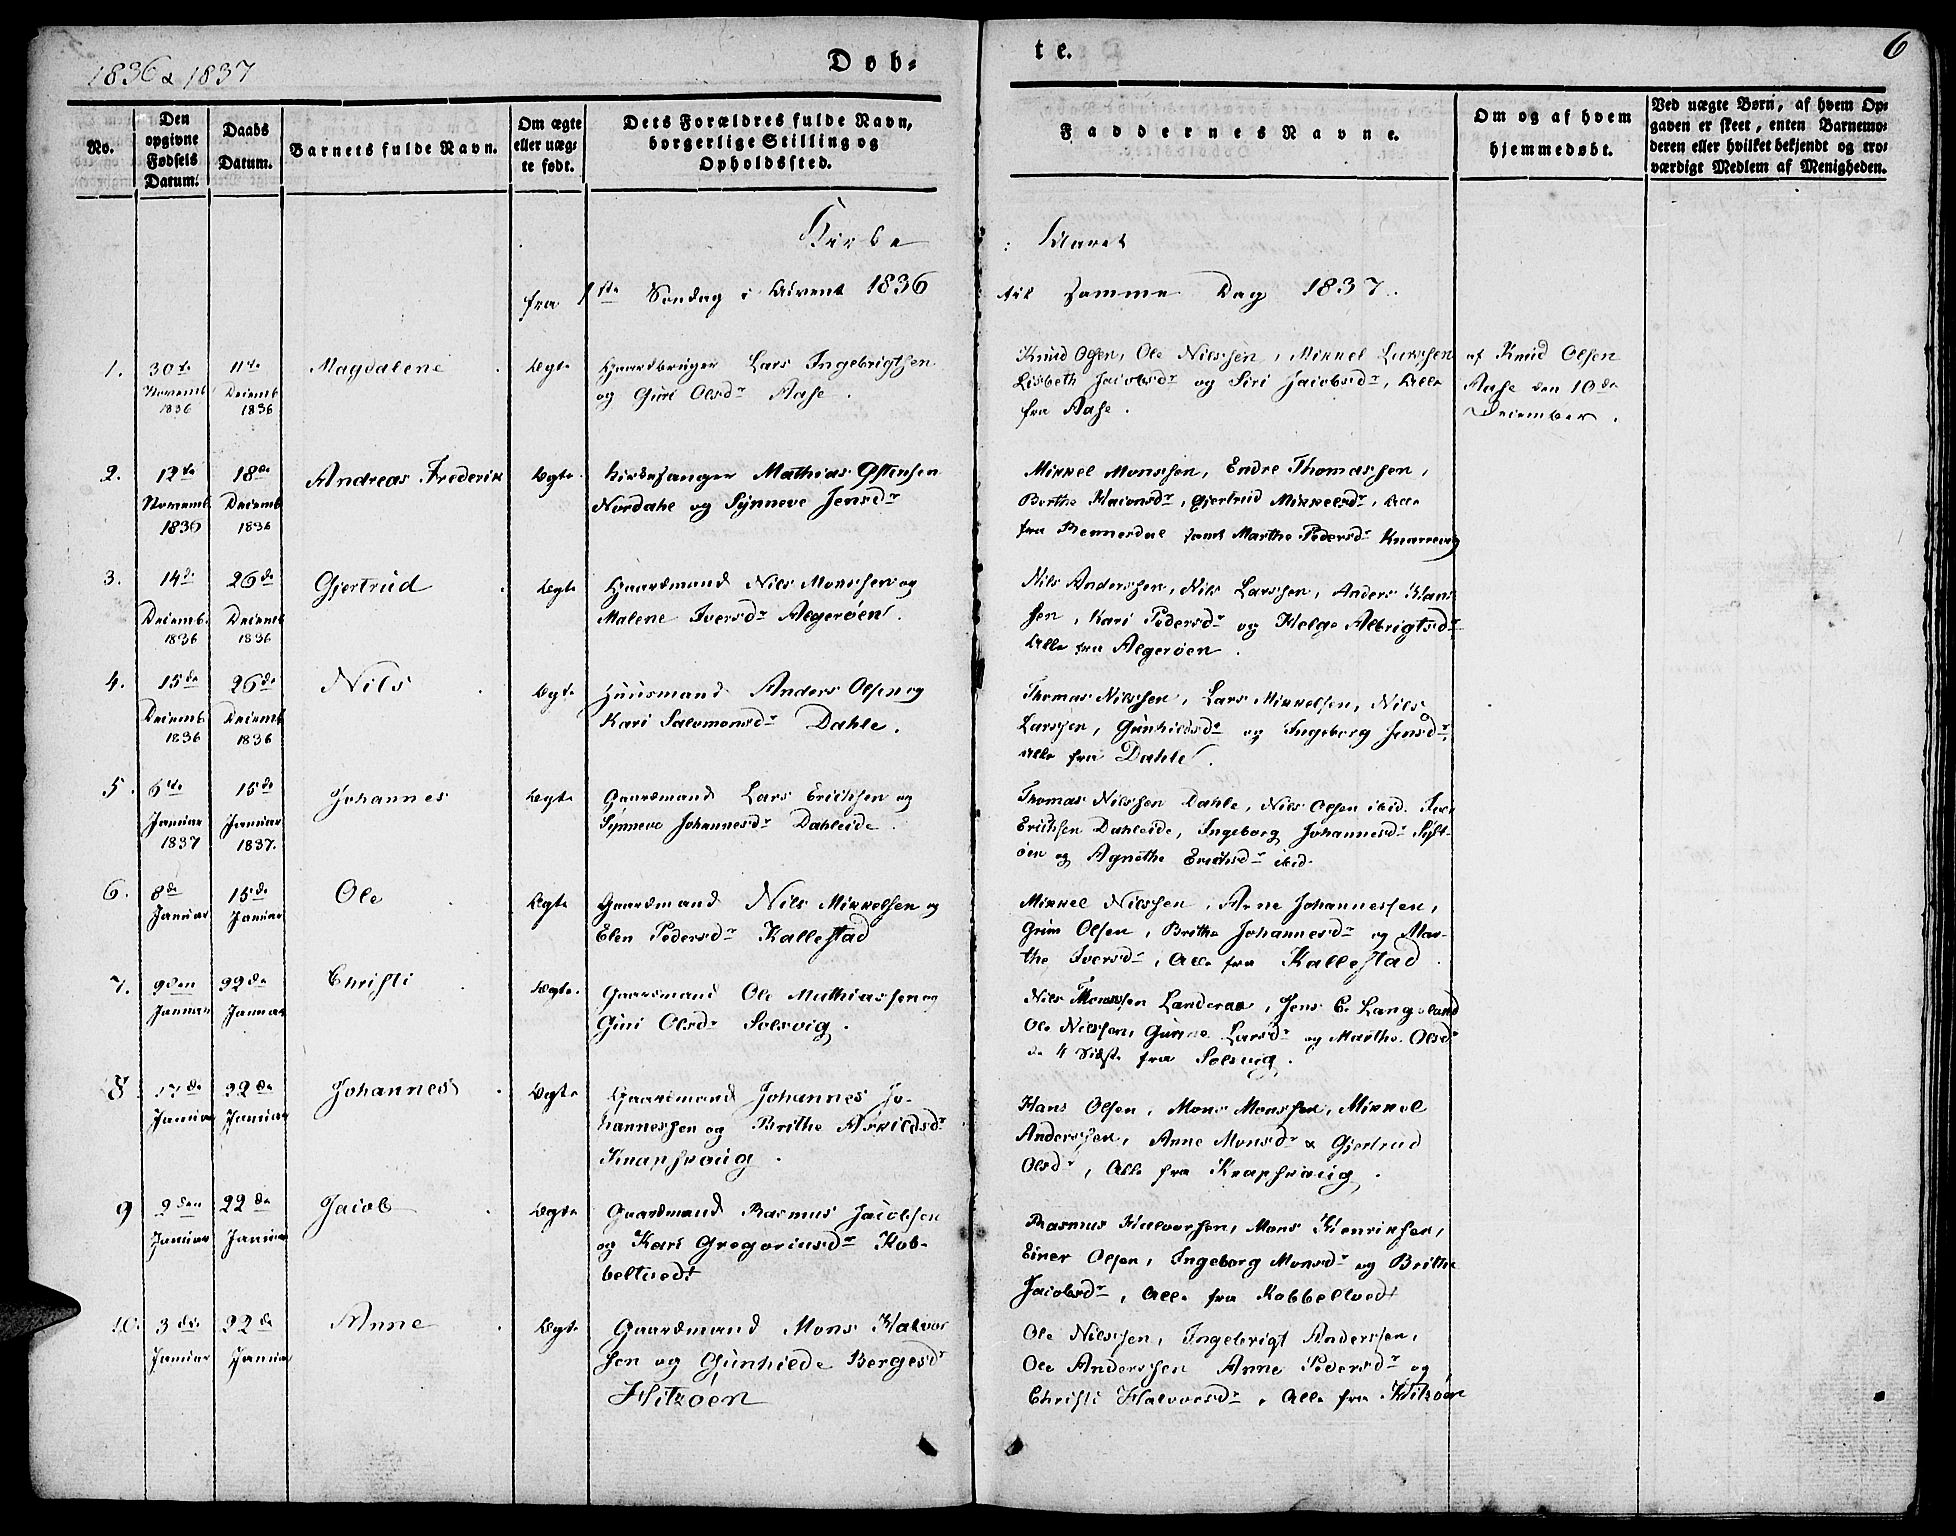 1836 & 1837
Døb-
te.
6
No.
Den
opgivne
Fødsels
Datum.
Daabs
Datum.
Barnets fulde Navn.
Om ægte
eller uæg-
te født.
Dets Forældres fulde Navn,
borgerlige Stilling og
Opholdssted.
Faddernes Navne.
Om og af hvem
hjemmedøbt.
Ved uægte Børn, af hvem Op-
gaven er skeet, enten Barnemo-
deren eller hvilket bekjendt og tro-
værdigt Medlem af Menigheden.
Kirke
: Aaret
fra 1ste Søndag i Advent 1836
til samme Dag 1837.
1.
30te
Novemb
1836
11te
Decemb
1836
Magdalene
Ægte
Gaardbruger Lars Ingebrigtsen
og Guri Olsdr Aase.
Knud Olsen, Ole Nilssen, Mikkel Larssen
Lisbeth Jacobsdr og Siri Jacobsdr, Alle
fra Aase.
af Knud Olsen
Aase den 10de
December.
2.
12te
Novemb.
1836
18de
Decemb
1836
Andreas Frederik
Ægte
Kirkesanger Mathias Ostensen
Nordahl og Synneve Jensdr
Mikkel Monssen, Endre Thomassen,
Berthe Haconsdr, Gjertrud Mikkelsdr, Alle
fra Bennesdal samt Marthe Pedersdr Knarrevig
3.
14de
Decemb.
1836
26de
Decemb
1836
Gjertrud
Ægte
Gaardmand Nils Monssen og
Malene Iversdr Algerøen.
Nils Anderssen, Nils Larssen, Anders Hans
sen, Kari Pedersdr og Helge Albrigtsdr
Alle fra Algerøen.
4.
15de
Decemb.
1836
26de
Decemb
1836
Nils
Ægte
Huusmand Anders Olsen og
Kari Salomonsdr Dahle.
Thomas Nilssen, Lars Mikkelsen, Nils
Larssen, Gunhildsdr og Ingeborg Jensdr,
Alle fra Dahle.
5.
6te
Januar
1837
15de
Januar
1837.
Johannes
Ægte
Gaardmand Lars Erichsen og
Synneve Johannesdr Dahleide.
Thomas Nilssen Dahle, Nils Olsen ibid. Iver
Erichsen Dahleide, Ingeborg Johannesdr Syst-
øen og Agnethe Erichsdr ibid.
6.
8de
Januar
15de
Januar
Ole
Ægte
Gaardmand Nils Mikkelsen og
Elen Pedersdr Kallestad
Mikkel Nilssen, Arne Johannessen,
Grim Olsen, Brithe Johannesdr og Mar-
the Iversdr, Alle fra Kallestad.
7.
9den
Januar
22de
Januar
Christi
Ægte
Gaardmand Ole Mathiassen og
Guri Olsdr Solsvig.
Nils Monssen Landeraa, Jens E. Langeland
Ole Nilssen, Gunne Larsdr og Marthe Olsdr
de 4 sidste fra Solsvig.
8
17de
Januar
22de
Januar
Johannes
Ægte
Gaardmand Johannes Jo-
hannessen og Brithe Arvildsdr
Knapskoug.
Hans Olsen, Mons Monssen, Mikkel
Anderssen, Anne Monsdr & Gjertrud
Olsdr, Alle fra Knapskoug.
9
9den
Januar
22de
Januar
Jacob
Ægte
Gaardmand Rasmus Jacobsen
og Kari Gregoriusdr Kob-
beltvedt
Rasmus Halvorsen, Mons Henriksen,
Einer Olsen, Ingeborg Monsdr og Brithe
Jacobsdr, Alle fra Kobbeltvedt
10.
3die
Januar
22de
Januar
Anne
Ægte
Gaardmand Mons Halvor
sen og Gunhilde Bergesdr
Hitzøen
Ole Nilssen, Ingebrigt Anderssen,
Ole Anderssen Anne Pedersdr og
Christi Halvorsdr, Alle fra Hitzøen